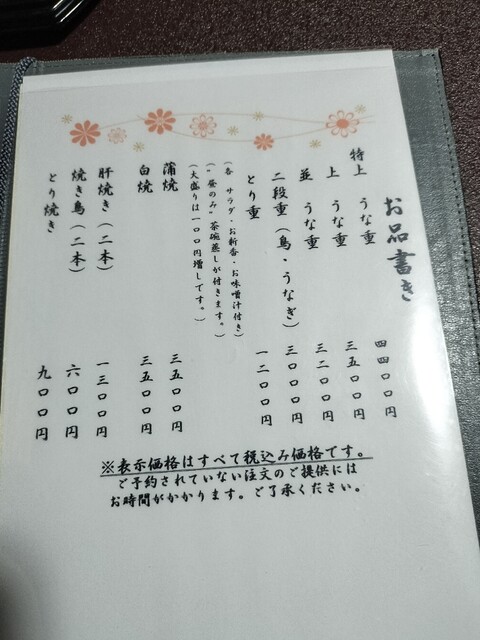 お品書き
特上 うな重 四四〇〇円
上 うな重 三五〇〇円
並 うな重 三二〇〇円
二段重(鳥・うなぎ) 三〇〇〇円
とり重 一二〇〇円
(各 サラダ・お新香・お味噌汁付き)
(“昼のみ”茶碗蒸しが付きます。)
(大盛りは一〇〇円増しです。)
蒲焼 三五〇〇円
白焼 三五〇〇円
肝焼き(二本) 一三〇〇円
焼き鳥(二本) 六〇〇円
とり焼き 九〇〇円
※表示価格はすべて税込み価格です。
ご予約されていない注文のご提供には
お時間がかかります。ご了承ください。